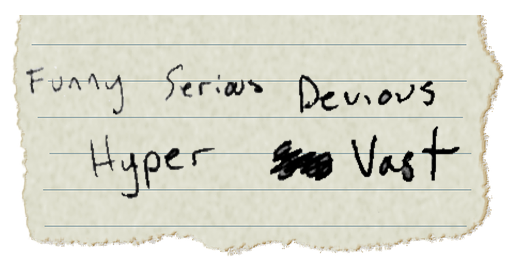 Funny Serious Devious
Hyper Vast